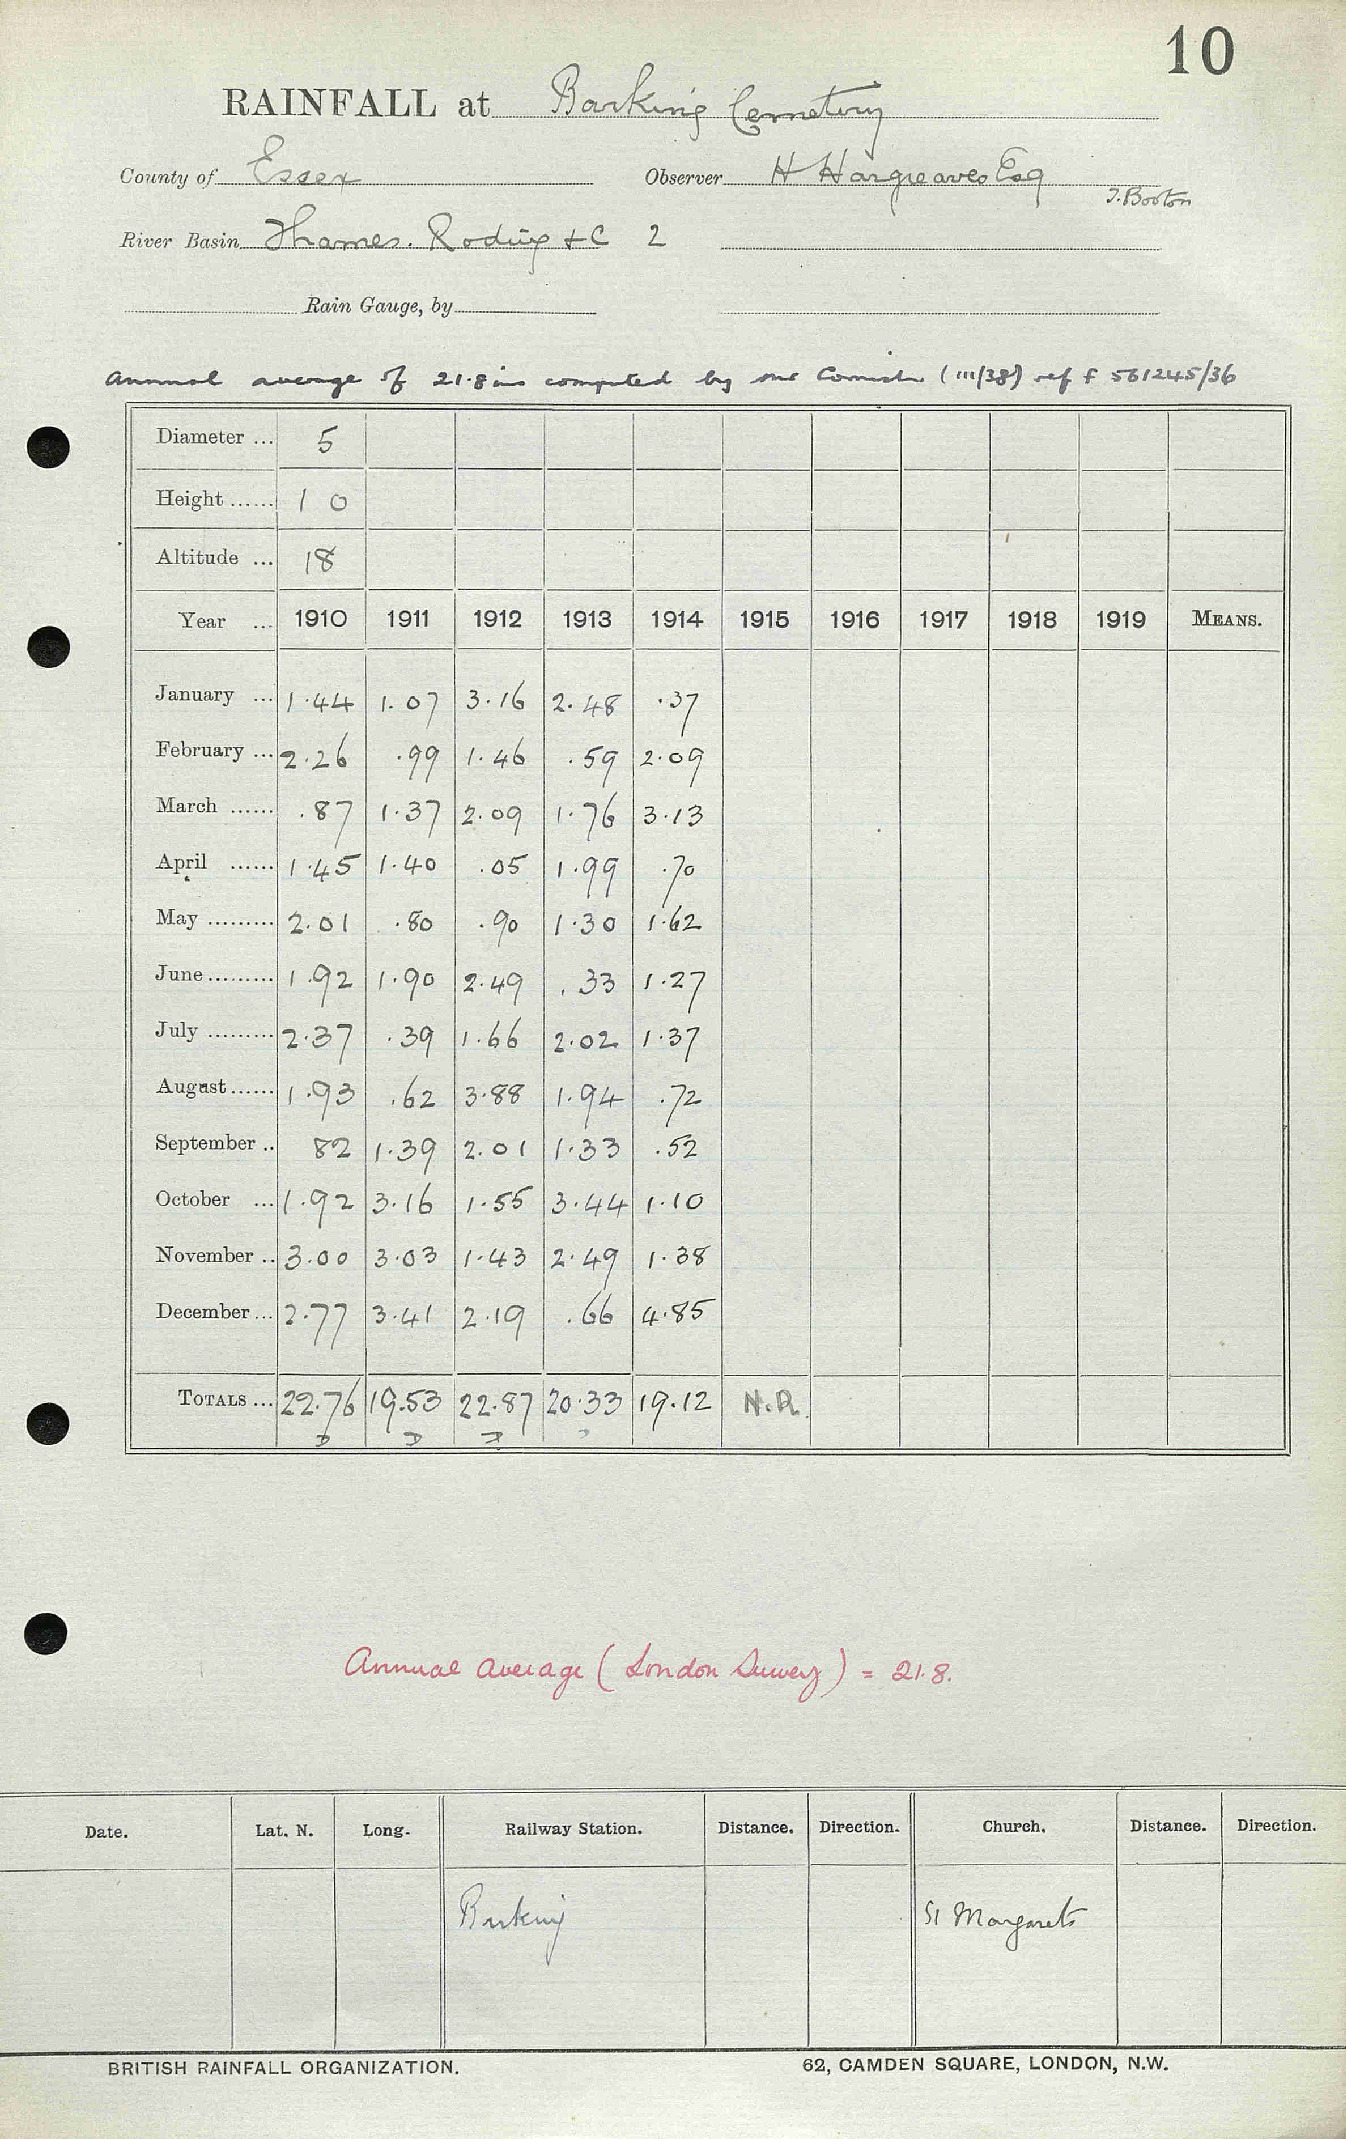 10
RAINFALL at Barking Cemetery
County of Essex Observer H Hargreaves Esq
J. Booton
River Basin Thames. Roding &C 2
Rain Gauge, by
Annual average of 21.8 ins computed by (III/38) ref F 561245/36
Diameter ... 5
Height ...... 1 0
Altitude ... 18
Year ... 1910 1911 1912 1913 1914 1915 1916 1917 1918 1919 MEANS.
January ... 1.44 1.07 3.16 2.48 .37
February ... 2.26 .99 1.46 .59 2.09
March ...... .87 1.37 2.09 1.76 3.13
April ...... 1.45 1.40 .05 1.99 .70
May ......... 2.01 .80 .90 1.30 1.62
June ......... 1.92 1.90 2.49 .33 1.27
July ......... 2.37 .39 1.66 2.02 1.37
August ...... 1.93 .62 3.88 1.94 .72
September .. 82 1.39 2.01 1.33 .52
October ... 1.92 3.16 1.55 3.44 1.10
November .. 3.00 3.03 1.43 2.49 1.38
December ... 2.77 3.41 2.19 .66 4.85
TOTALS ... 22.76 19.53 22.87 20.33 19.12 N.R.
Annual Average (London Survey) = 21.8.
Date. Lat. N. Long. Railway Station. Distance. Direction. Church. Distance. Direction.
Barking St Margarets
BRITISH RAINFALL ORGANIZATION. 62, CAMDEN SQUARE, LONDON, N.W.